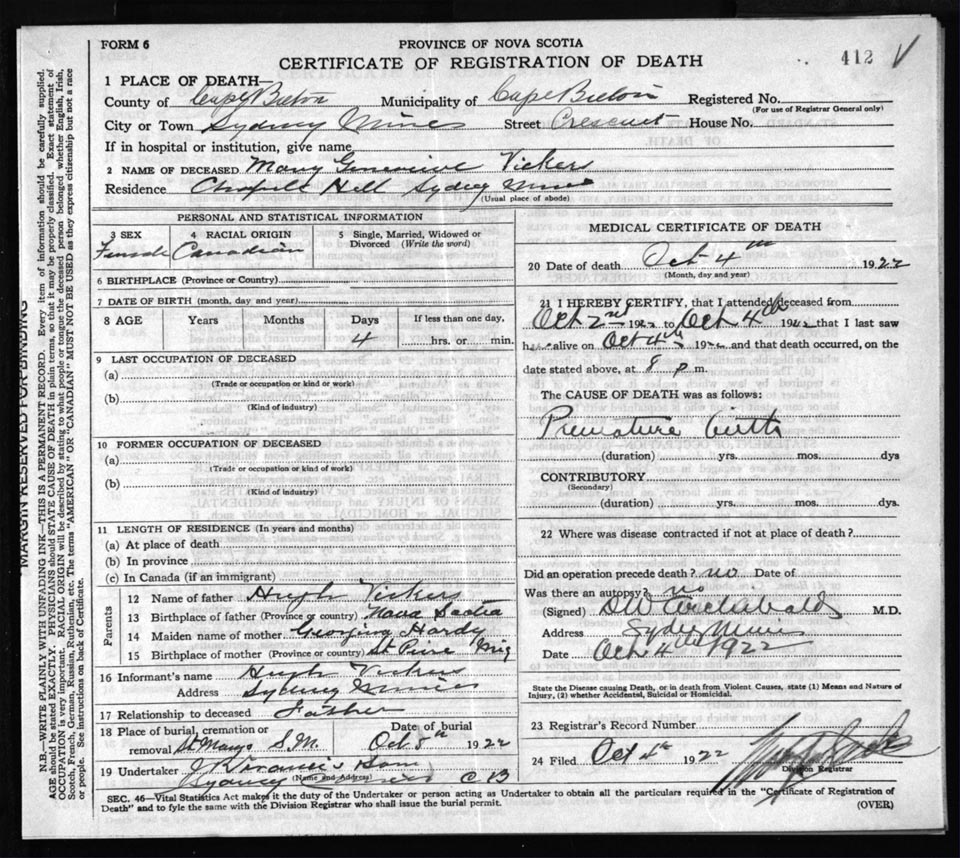 FORM 6
PROVINCE OF NOVA SCOTIA
CERTIFICATE OF REGISTRATION OF DEATH
412 √
1 PLACE OF DEATH—
County of Cape Breton Municipality of Cape Breton Registered No.
(For use of Registrar General only)
City or Town Sydney Mines Street Crescent House No.
If in hospital or institution, give name
2 NAME OF DECEASED Mary Genevieve Vickers
Residence Chapel Hill Sydney Mines
(Usual place of abode)
PERSONAL AND STATISTICAL INFORMATION
3 SEX 4 RACIAL ORIGIN 5 Single, Married, Widowed or Divorced (Write the word)
Female Canadian
6 BIRTHPLACE (Province or Country)
7 DATE OF BIRTH (month, day and year)
8 AGE Years Months Days If less than one day,
4 hrs. or min.
9 LAST OCCUPATION OF DECEASED
(a)
(Trade or occupation or kind or work)
(b)
(Kind of industry)
10 FORMER OCCUPATION OF DECEASED
(a)
(Trade or occupation or kind of work)
(b)
(Kind of industry)
11 LENGTH OF RESIDENCE (In years and months)
(a) At place of death
(b) In province
(c) In Canada (if an immigrant)
Parents
12 Name of father Hugh Vickers
13 Birthplace of father (Province or country) Nova Scotia
14 Maiden name of mother Hardy
15 Birthplace of mother (Province or country) St Pierre Miq
16 Informant's name Hugh Vickers
Address Sydney Mines
17 Relationship to deceased Father
18 Place of burial, cremation or removal St Marys S.M. Date of burial Oct 5th 1922
19 Undertaker & Son
(Name and address)
Sydney Mines C B
MEDICAL CERTIFICATE OF DEATH
20 Date of death Oct 4th 1922
(Month, day and year)
21 I HEREBY CERTIFY, that I attended deceased from
Oct 2nd 1922 to Oct 4th 1922 that I last saw
h alive on Oct 4th 1922 and that death occurred, on the
date stated above, at 8 p m.
The CAUSE OF DEATH was as follows:
Premature birth
(duration) yrs. mos. dys
CONTRIBUTORY
(Secondary)
(duration) yrs. mos. dys.
22 Where was disease contracted if not at place of death?
Did an operation precede death? no Date of
Was there an autopsy? no
(Signed) DW Archibald M.D.
Address Sydney Mines
Date Oct 4th 1922
State the Disease causing Death, or in death from Violent Causes, state (1) Means and Nature of
Injury, (2) whether Accidental, Suicidal or Homicidal.
23 Registrar's Record Number
24 Filed Oct 4th 1922
Division Registrar
SEC. 46—Vital Statistics Act makes it the duty of the Undertaker or person acting as Undertaker to obtain all the particulars required in the "Certificate of Registration of
Death" and to fyle the same with the Division Registrar who shall issue the burial permit. (OVER)
MARGIN RESERVED FOR BINDING
N.B.—WRITE PLAINLY WITH UNFADING INK—THIS IS A PERMANENT RECORD. Every item of information should be carefully supplied.
AGE should be stated EXACTLY. PHYSICIANS should STATE CAUSE OF DEATH in plain terms, so that it may be properly classified. Exact statement of
OCCUPATION is very important. RACIAL ORIGIN will be described by stating to what people or tongue the deceased person belonged whether English, Irish,
Scotch, French, German, Russian, Ruthenian, etc. The terms "AMERICAN" OR "CANADIAN" MUST NOT BE USED as they express citizenship but not a race
or people. See instructions on back of Certificate.